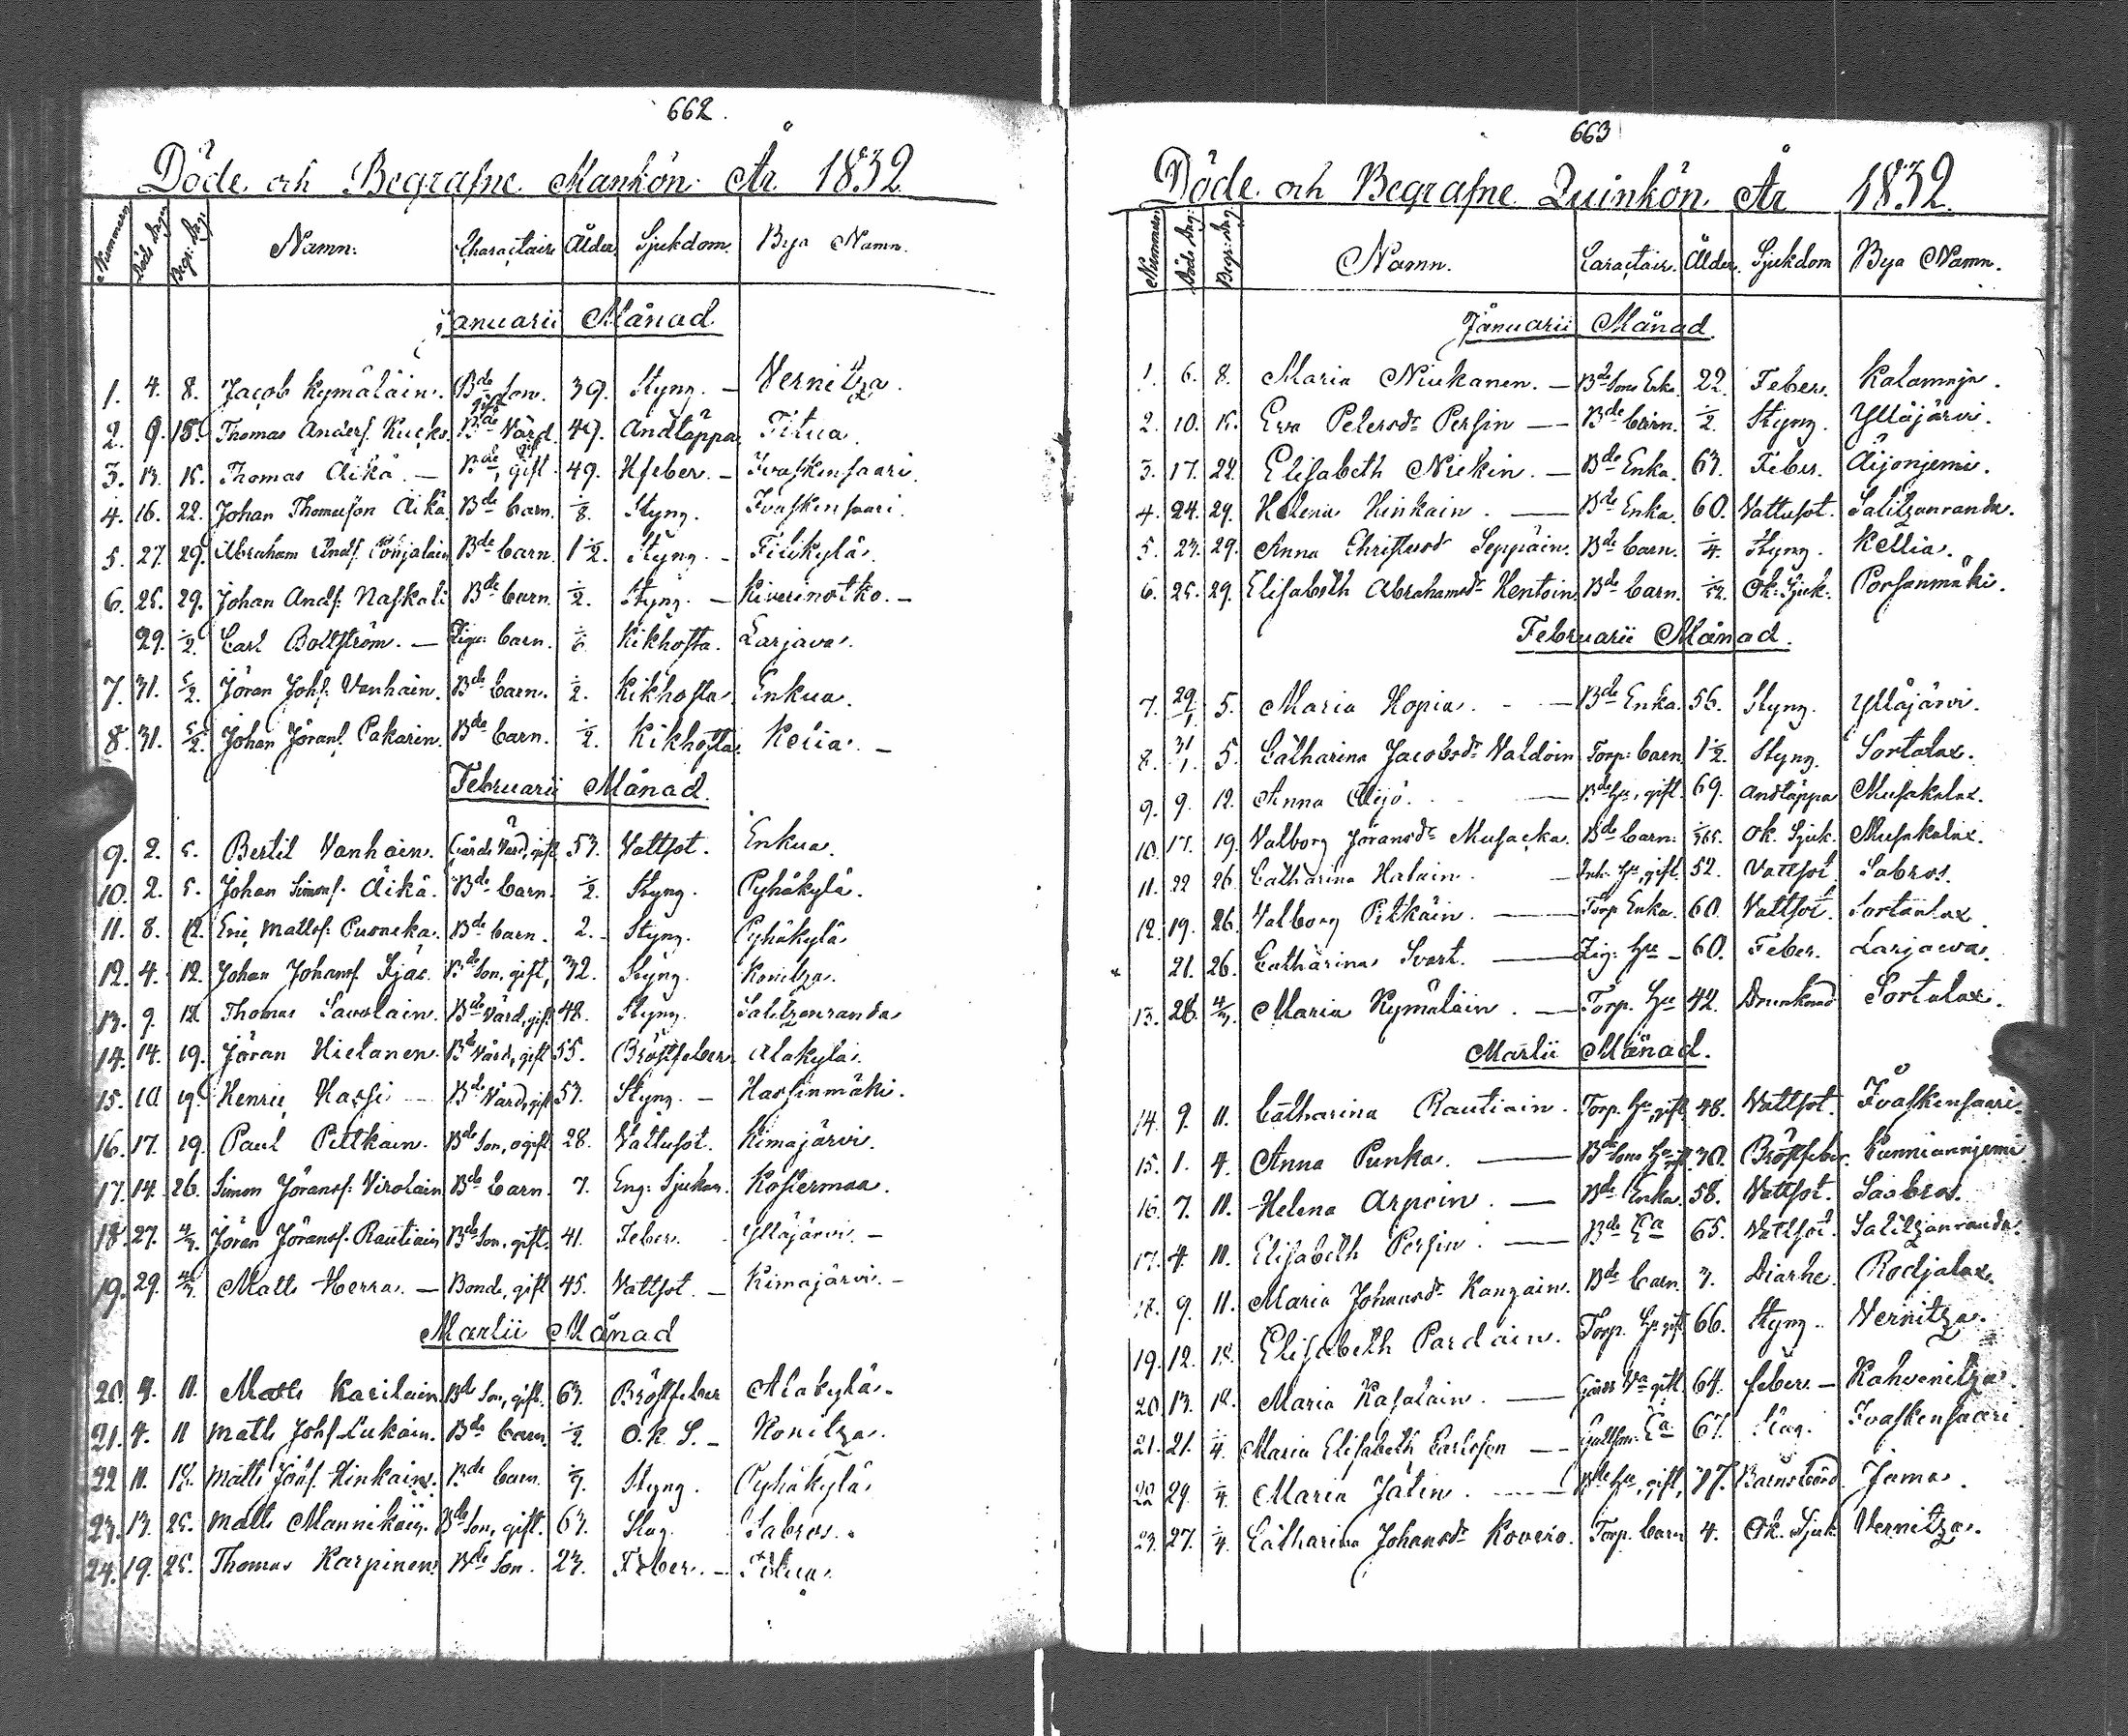 662.
Döde och Begrafne Mankön År 1832
Nummern Döds Dag Begr: Dag. Namn: Charactair Ålder Sjukdom Bya Namn.
Januarii Månad
1. 4. 8. Jacob Kymäläin. Bde Son. gift 39. Styng. — Vernitza.
2. 9. 15. Thomas Anders. Kucko Bde Värd. gift 49. Andtäppa Titua.
3. 13. 15. Thomas Äikä. — Bde, gift 49. Hfeber. — Ivaskensaari.
4. 16. 22. Johan Thomasson Äikä. Bde barn. 1/8. Styng. Ivaskensaari.
5. 27. 29. Abraham Andf. Pohjalain Bde barn. 1 1/2. Styng. — Tiikylä.
6. 25. 29. Johan Andf. Naskali Bde barn. 1/2. Styng. — Kiverinotko. —
29. 1/2. Carl Boltström. — Zigu: barn. 1/6 Kikhosta. Larjava.
7. 31. 5/2. Jöran Johf. Vanhain. Bde barn. 1/2. Kikhosta Enkua.
8. 31. 5/2. Johan Jöranf. Pakarin. Bde barn. 1/2. Kikhosta. Kelia. —
Februarii Månad.
9. 2. 5. Bertil Vanhain. Gårds Värd, gift 53. Vattsot. Enkua.
10. 2. 5. Johan Simonf. Äikä. Bde barn. 1/2. Styng. Pyhäkylä.
11. 8. 12. Eric Mattsf. Puoncka. Bde barn. 2. Styng. Pyhäkylä
12. 4. 12. Johan Johanf. Sjäs. Bde Son, gift, 32. Styng. Konitza.
13. 9. 12. Thomas Savolain. Bde Värd, gift 48. Styng. Salitzenranda
14. 14. 19. Jöran Hietanen. Bde Värd, gift 55. Bröstfeber Alakylä.
15. 10. 19. Henric Hassi — Bde Värd, gift 57. Styng. — Hassinmäki.
16. 17. 19. Paul Pitkäin. Bde Son, ogift 28. Vattusot. Kimajärvi.
17. 14. 26. Simon Jöransf. Virolain Bde barn. 7. Eng: Sjukan. Kostermaa.
18. 27. 4/3. Jöran Jöransf. Rautiain Bde Son, gift. 41. Feber. Ylläjärvi. —
19. 29. 4/3. Matts Herra. — Bonde, gift 45. Vattsot. — Kimajärvi. —
Martii Månad
20. 4. 11. Matts Karilain Bde Son, gift. 63. Bröstfeber Alakylä.
21. 4. 11 Matts Johf Lukain. Bde barn. 1/2. O.K. S. — Konitza.
22 11. 18. Matts Jöhf. Hinkain. Bde barn. 1/9. Styng. Pyhäkylä
23. 13. 25. Matts Mannikäin. Bde Son, gift. 63. Slag. Sabros.
24. 19. 25. Thomas Karpinen Bde Son. 23. Feber. — Titua.
663
Döde och Begrafne Quinkön År 1832.
Nummer Döds Dag: Begr: Dag. Namn. Caractair. Ålder. Sjukdom Bya Namn.
Januarii Månad.
1. 6. 8. Maria Niukanen. — Bde Sons Enka 22. Feber. Kalamaja.
2. 10. 15. Eva Petersdr Persin — Bde barn. 1/2. Styng. Ylläjärvi.
3. 17. 22. Elisabeth Niekin. — Bde Enka. 63. Feber. Äijönjemi.
4. 24. 29. Helena Hinkain. — Bde Enka. 60. Vattusot. Salitzanranda.
5. 23. 29. Anna Christersdr Seppäin. Bde barn. 1/4. Styng. Kellia.
6. 25. 29. Elisabeth Abrahamsdr Hentoin. Bde barn. 1/52. Ok: Sjuk. Porsanmäki.
Februarii Månad.
7. 29/1 5. Maria Hopia. — Bde Enka. 56. Styng. Ylläjärvi.
8. 31/1 5. Catharina Jacobsdr Valdoin Torp: barn 1 1/2. Styng. Sortalax.
9. 9. 12. Anna Äijö. — Bde hu, gift. 69. Andtäppa Musakalax.
10. 17. 19. Valborg Jöransdr Musacka. Bde barn. 1/365. Ok. Sjuk. Musakalax.
11. 22 26. Catharina Halain. — Inh. hu, gift. 52. Vattsot. Sabros.
12. 19. 26. Valborg Pitkäin. — Torp Enka. 60. Vattsot. Sortanlax
21. 26. Catharina Svart. — Zig: hu — 60. Feber. Larjawa.
13. 28. 4/3. Maria Kymäläin. — Torp. hu 42. Drunknad Sortalax.
Martii Månad.
14. 9. 11. Catharina Rautiain. Torp. hu, gift 48. Vattsot. Ivaskensaari.
15. 1. 4. Anna Punka. — Bde Sons hu gift 30. Bröstfeber. Kunnianniemi
16. 7. 11. Helena Arpoin. — Bde Enka 58. Vattsot. Sasbros.
17. 4. 11. Elisabeth Persin. — Bde Ea 65. Vattsot. Salitzanranda.
18. 9. 11. Maria Johansdr Kangain. Bde barn 3. Diarhe. Rodjalax.
19. 12. 18. Elisabeth Pardain. Torp. hu gift 66. Styng. Vernitza.
20. 13. 18. Maria Kasalain. — Gårds Va gift. 64. feber. — Kahvenitza.
21. 21. 1/4. Maria Elisabeth Carlsson — Ea 67. Slag. Ivaskensaari
22 29. 1/4. Maria Jätin. — Bde hu, gift, 37. Barnsbörd Jama.
23. 27. 1/4. Catharina Johansdr Kovero. Torp. barn 4. Ok. Sjuk Vernitza.